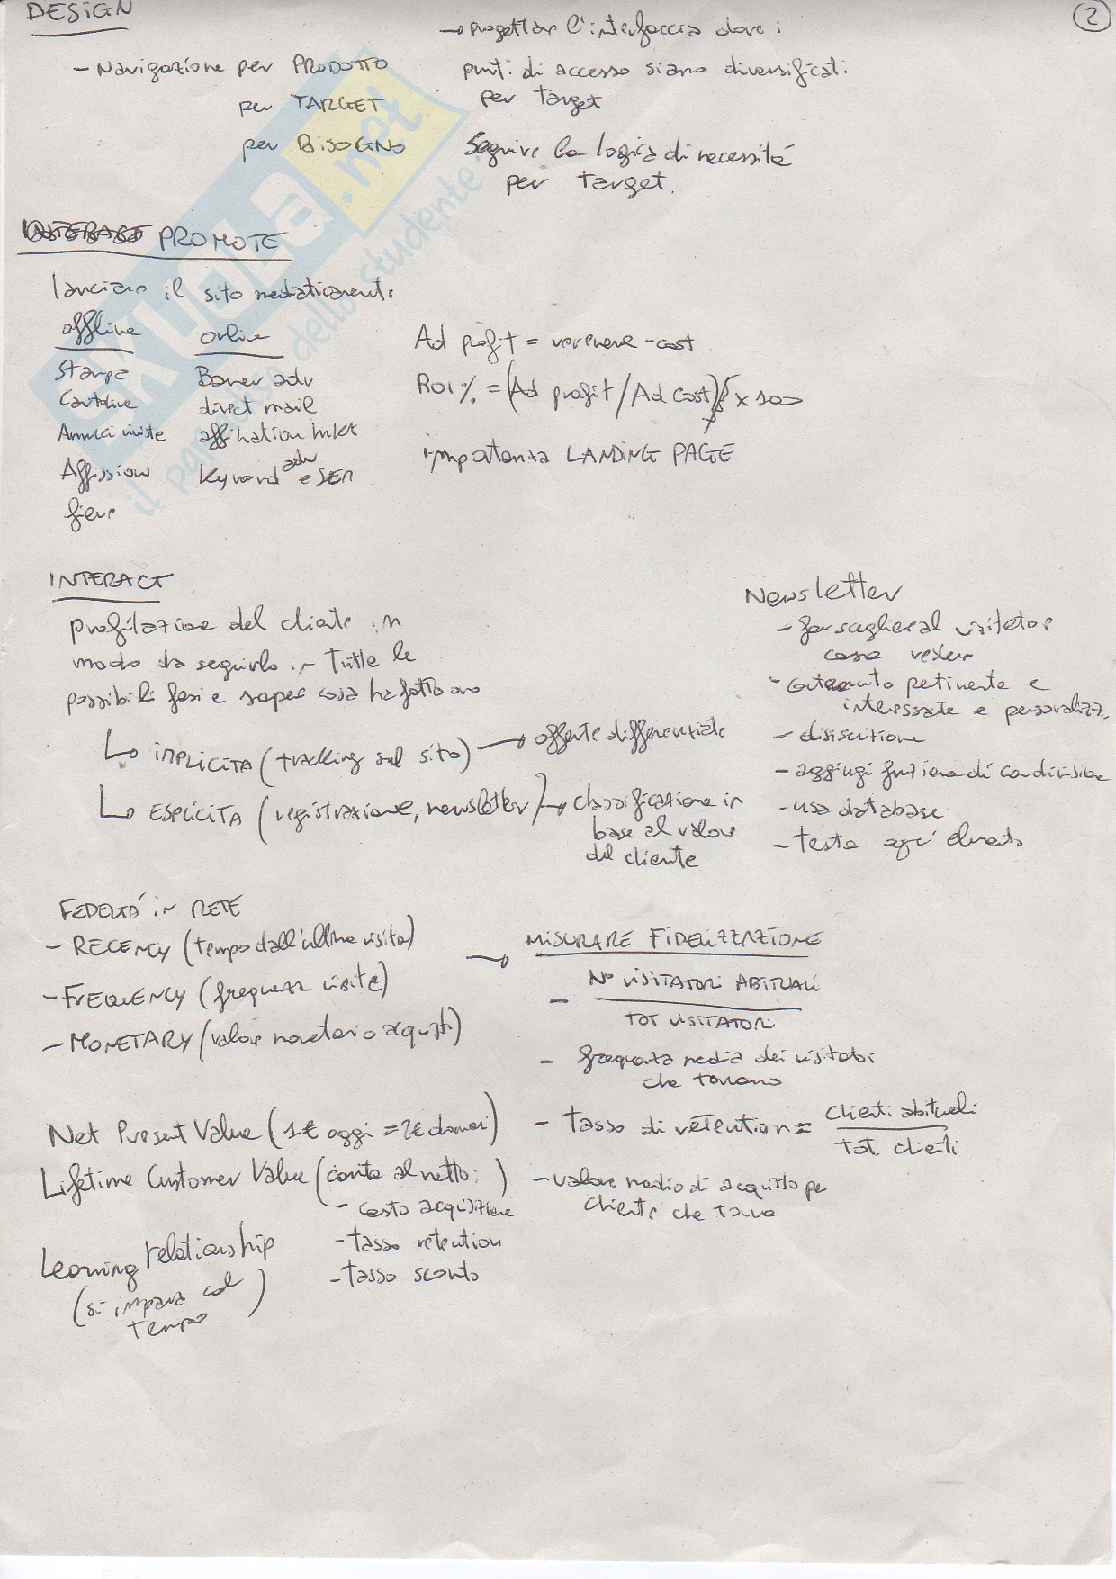 DESIGN
2
- Navigazione per PRODOTTO
per TARGET
per BISOGNO
→ progettare l'interfaccia dove i
punti di accesso siano diversificati
per target
Seguire la logica di necessità
per target.
INTERACT PROMOTE
lanciare il sito mediaticamente
offline
Stampa
Cartoline
Annunci riviste
Affissioni
fiere
online
Banner adv
direct mail
affiliation mkt
Keyword adv e SEM
Ad profit = revenue - cost
ROI % = (Ad profit / Ad cost) x 100
importanza LANDING PAGE
INTERACT
profilazione del cliente in
modo da seguirlo in tutte le
possibili fasi e saper cosa ha fatto
↳ IMPLICITA (tracking sul sito) → offerte differenziate
↳ ESPLICITA (registrazione, newsletter) → classificazione in
base al valore
del cliente
Newsletter
- far scegliere al visitatore
cosa vedere
- contenuto pertinente e
interessante e personalizz.
- disiscrizione
- aggiungi funzione di condivisione
- usa database
- testa ogni elemento
FEDELTÀ IN RETE
- RECENCY (tempo dall'ultima visita)
- FREQUENCY (frequenza visite)
- MONETARY (valore monetario acquisti)
→ MISURARE FIDELIZZAZIONE
- N° VISITATORI ABITUALI
TOT VISITATORI
- frequenza media dei visitatori
che tornano
- tasso di retention = clienti abituali
tot. clienti
- valore medio di acquisto per
cliente che torna
Net Present Value (1€ oggi = 2€ domani)
Lifetime Customer Value (conta al netto: )
- costo acquisizione
- tasso retention
- tasso sconto
Learning relationship
(si impara col
tempo)
skuola.net
il paradiso dello studente